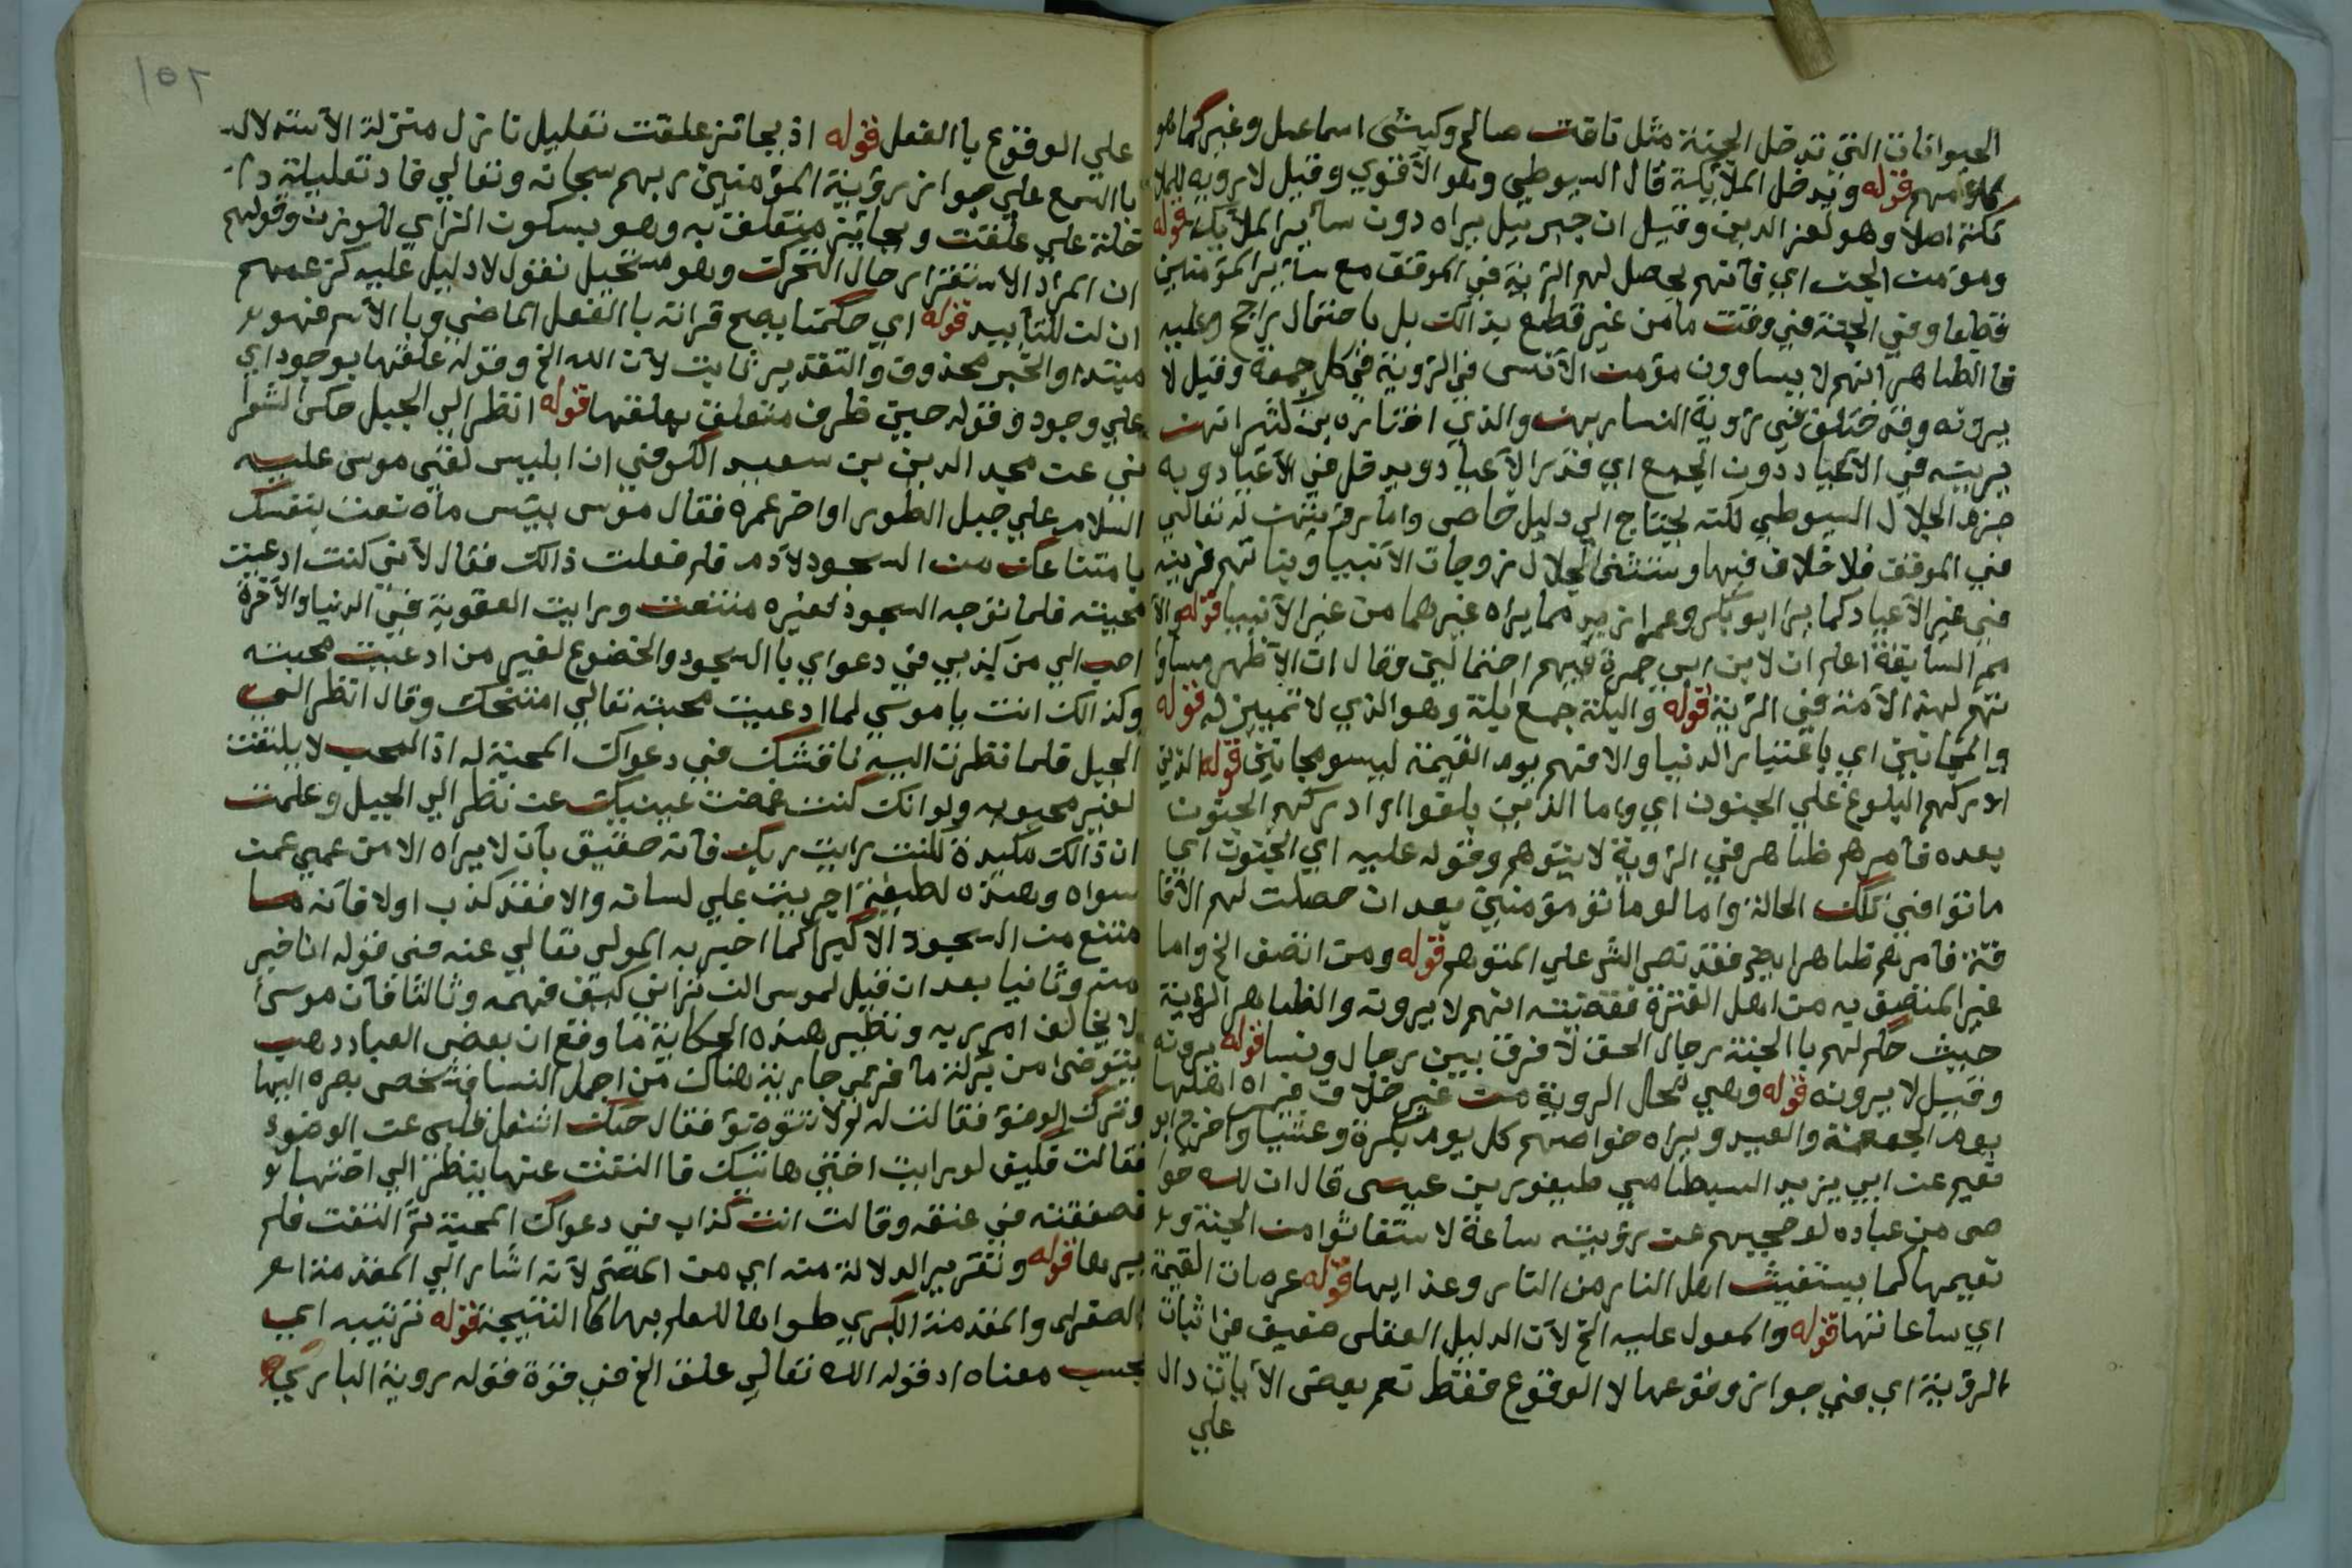 الحيوانات التي تدخل الجنة مثل ناقت صالح وكبش اسماعيل وغير كما هو
قوله وتدخل الملايكة قال السيوطي وهو الاقوي وقيل لا رويه للملا
يكة اصلا وهو لعز الدين وقيل ان جبريل يراه دون ساير الملايكة قوله
ومؤمن الجن اي فانهم يحصل لهم الرية في الموقف مع ساير المؤمنين
قطعا وفي الجنة في وقت ما من غير قطع بذالك بل باحتمال راجح وعليه
فا الظاهر انهم لا يساوون مؤمن الانس في الروية في كل جمعة وقيل لا
يرونه وقد ختلف في روية النسا ربهن والذي اختاره بن كثير انهن
يرينه في الاعياد دون الجمع اي قدر الاعياد ويدخل في الاعياد وبه
جزم الجلال السيوطي لكنه يحتاج الي دليل خاص واما رؤيتهن له تعالي
في الموقف فلا خلاف فيها وستثنى الجلال زوجات الانبيا وبناتهم فرينه
في غير الاعياد كما يرا ابو بكر وعمر ازيد مما يراه غيرهما من غير الانبيا قوله والا
مم السابقة اعلم ان لابن ابي جمرة فيهم احتمالين وقال ان الاظهر مساوا
تهم لهذ الامة في الرية قوله والبله جمع ابله وهو الذي لا تمييز له قوله
والمجانين اي باعتبار الدنيا والا فهم يوم القيمة ليسو مجانين قوله الذين
ادركهم البلوغ علي الجنون اي واما الذين بلغوا ادركهم الجنون
بعده فامرهم ظاهر في الروية لا يتوهم وقوله عليه اي الجنون اي
ماتوا في تلك الحالة واما لو ماتو مؤمنين بعد ان حصلت لهم الافا
قة فامرهم ظاهر ايضا فقد نص الشر علي المتوهم قوله ومن اتصف الخ واما
غير المتصف به من اهل الفترة انهم لا يرونه والظاهر الرؤية
حيث حكم لهم با الجنة رجال الحق لا فرق بين رجال ونسا قوله يرونه
وقيل لا يرونه قوله وهي محال الروية من غير خلاف فيراه اهلها
يوم الجمعة والعيد ويراه خواصهم كل يوم بكرة وعشيا واخرج ابو
نعيم عن ابي يزيد البسطامي طيفور بن عيسى قال ان لله خوا
ص من عباده لو حجبهم عن رؤيته ساعة لاستغاثوا من الجنة و
نعيمها كما يستغيث اهل النار من النار وعذابها قوله عرصات القيمة
اي ساعاتها قوله والمعول عليه الخ لان الدليل العقلي ضعيف في اثبات
الرؤية اي في جواز وقوعها لا الوقوع فقط نعم بعض الايات دال
علي
١٥٢
علي الوقوع با الفعل قوله اذ بجائز علقت تعليل نازل منزلة الاستدلال
با السمع علي جواز رؤية المؤمنين ربهم سبحانه وتعالي فاذ تعليلية دا
خلة علي علقت وبجائز متعلق به وهو بسكون الزاي للوزن وقولهم
ان المراد الاستقرار حال التحرك وهو مستحيل نقول لا دليل عليه كزعمهم
ان لن للتأبيد قوله اي حكمنا يصح قرانه با الفعل الماضي وبا الاسم فهو
مبتدا والخبر محذوف والتقدير ثابت لان الله الخ وقوله علقها بوجود اي
علي وجود وقوله حين ظرف متعلق بعلقها قوله انظر الي الجبل حكى الشعرا
ني عن مجد الدين بن سعيد الكوفي ان ابليس لقي موسى عليه
السلام علي جبل الطور اواخر عمره فقال موسى بئس ماه نعت بنفسك
با متناعك من السجود لادم فلم فعلت ذالك فقال لاني كنت ادعيت
محبته فلما توجه السجود لغيره متنعت ورايت العقوبة في الدنيا والاخرة
احب الي من كذبي في دعواي با السجود والخضوع لغير من ادعيت محبته
وكذالك انت يا موسى لما ادعيت محبته تعالي امتحنك وقال انظر الي
الجبل فلما نظرت اليه ناقشك في دعواك المحبة له اذ المحب لا يلتفت
لغير محبوبه ولو انك كنت غمضت عينيك عن نظر الي الجبل وعلمت
ان ذالك مكيدة لكنت رايت ربك فانه حقيق بان لا يراه الا من عمي عن
سواه وهذه لطيفة اجريت علي لسانه والا فقد كذب اولا فانه ما
متنع من السجود الا كبرا كما اخبر به المولى تعالي عنه في قوله انا خير
منه وثانيا بعد ان قيل لموسى لن تراني كيف فهمه وثالثا فان موسى
لا يخالف امر ربه ونظير هذه الحكاية ما وقع ان بعض العباد ذهب
يتوضا من بركة ما فر تمر جارية هناك من اجمل النسا فشخص بصره اليها
وترك الوضؤ فقالت له لولا تتوضؤ فقال حبك اشغل قلبي عن الوضوء
فقالت فكيف لو رايت اختي هاتيك فا التفت عنها ينظر الي اختها
فصفقته في عنقه وقالت انت كذاب في دعواك المحبة ثم التفت فلم
يرها قوله وتقرير الدلالة منه اي من النص لانه اشار الي المقدمة
الصغرى والمقدمة الكبري طواها للعلم بها كا النتيجة قوله ترتيبه اي
بحسب معناه اذ قوله الله تعالي علق الخ في قوة قوله روية الباري